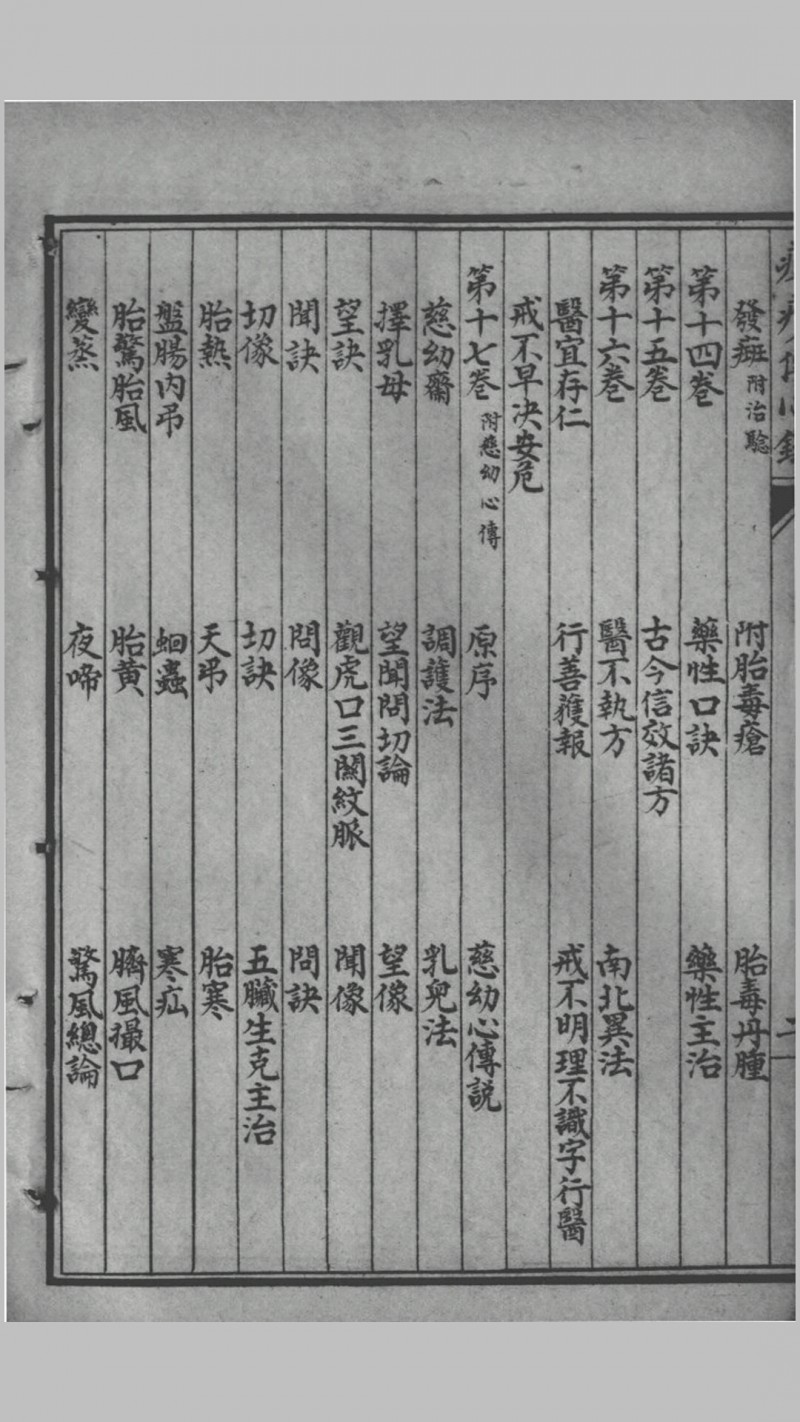 發斑附治驗 附胎毒瘡 胎毒丹腫
第十四卷 藥性口訣 藥性主治
第十五卷 古今信效諸方
第十六卷 醫不執方 南北異法
醫宜存仁 行善獲報 戒不明理不識字行醫
戒不早決安危
第十七卷附慈幼心傳 原序 慈幼心傳説
慈幼齋 調護法 乳兒法
擇乳母 望聞問切論 望像
望訣 觀虎口三關紋脈 聞像
聞訣 問像 問訣
切像 切訣 五臟生克主治
胎熱 天弔 胎寒
盤腸內弔 蛔蟲 寒疝
胎驚胎風 胎黃 臍風撮口
變蒸 夜啼 驚風總論